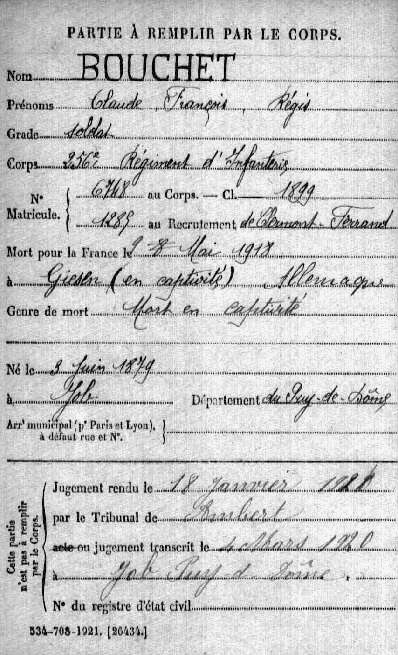 PARTIE À REMPLIR PAR LE CORPS.
Nom BOUCHET
Prénoms Claude, François, Régis
Grade soldat
Corps 256e Régiment d'Infanterie
N° Matricule. 6748 au Corps. — Cl. 1899
1285 au Recrutement de Clermont-Ferrand
Mort pour la France le 8 Mai 1917
à Giesen (en captivité) Allemagne
Genre de mort Mort en captivité
Né le 3 Juin 1879
à Job Département du Puy-de-Dôme
Arrt municipal (pr Paris et Lyon), à défaut rue et N°.
Cette partie n'est pas à remplir par le Corps.
Jugement rendu le 18 Janvier 1920
par le Tribunal de Ambert
acte ou jugement transcrit le 4 Mars 1920
à Job Puy d Dôme.
N° du registre d'état civil
534-708-1921. [26434.]